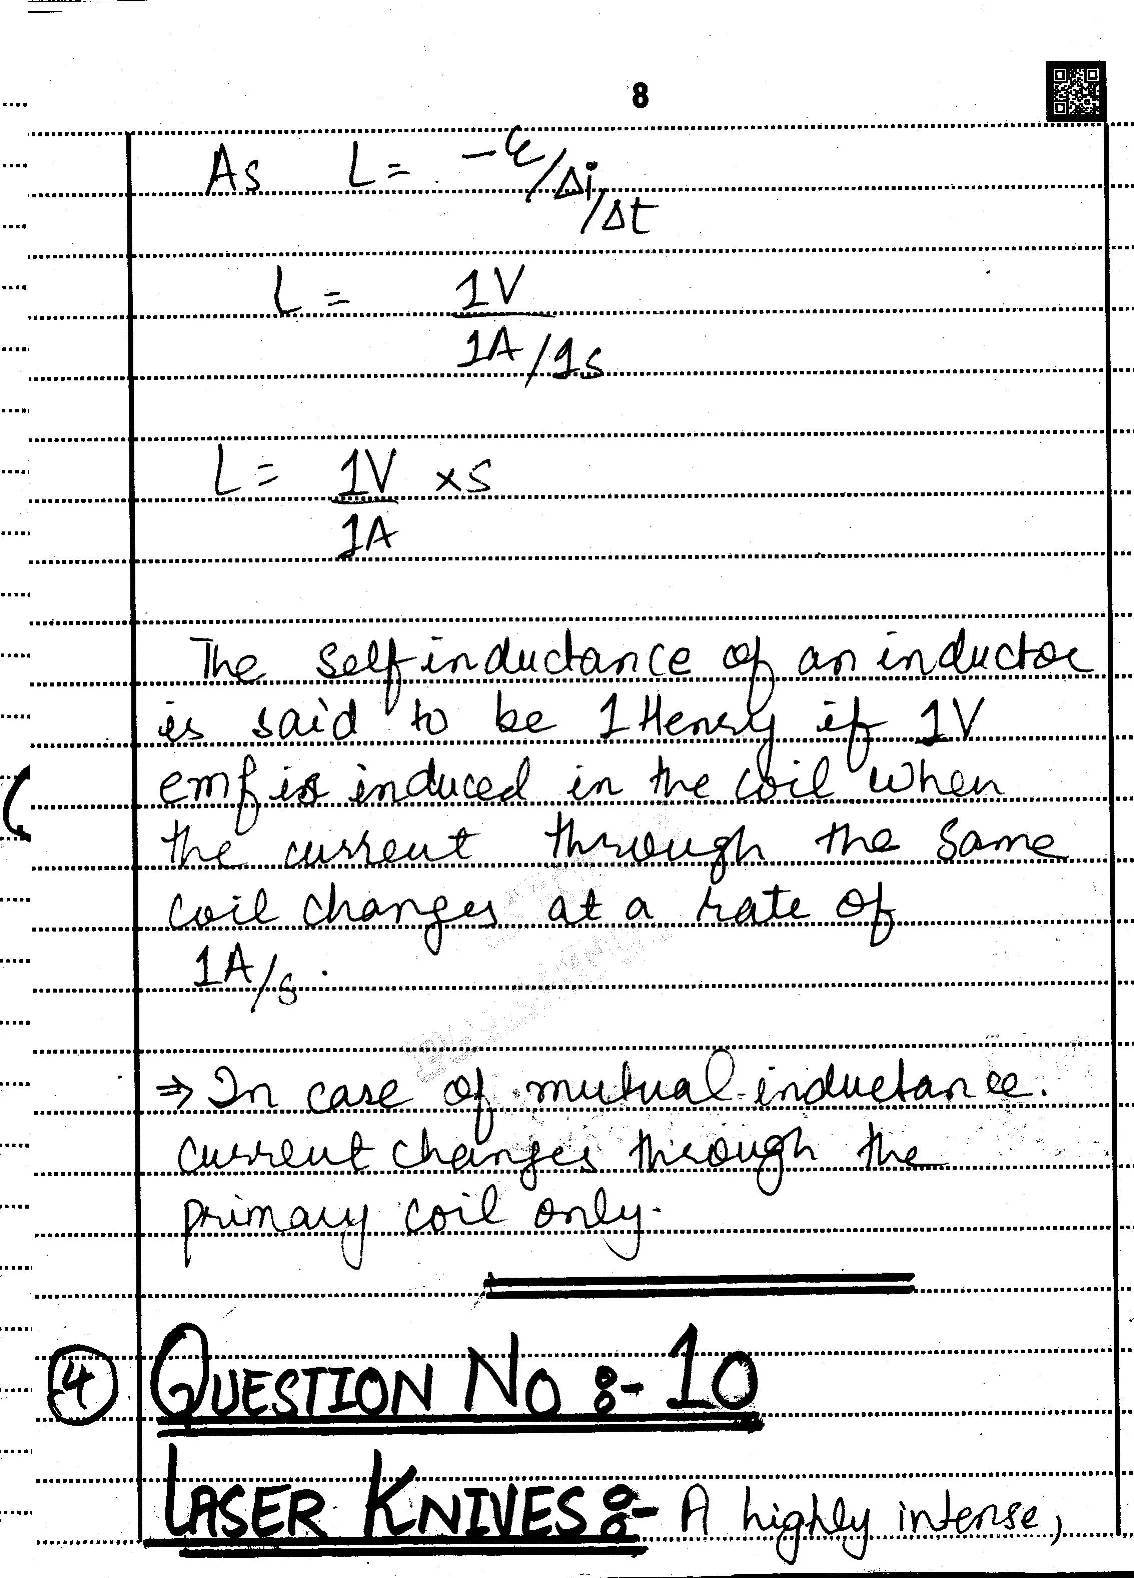 8
As L = -ε/Δi/Δt
L = 1V
1A/1s
L = 1V × s
1A
The self inductance of an inductor
is said to be 1 Henry if 1V
emf is induced in the coil when
the current through the same
coil changes at a rate of
1A/s.
⇒ In case of mutual-inductance.
current changes through the
primary coil only.
4 QUESTION No :- 10
LASER KNIVES :- A highly intense,